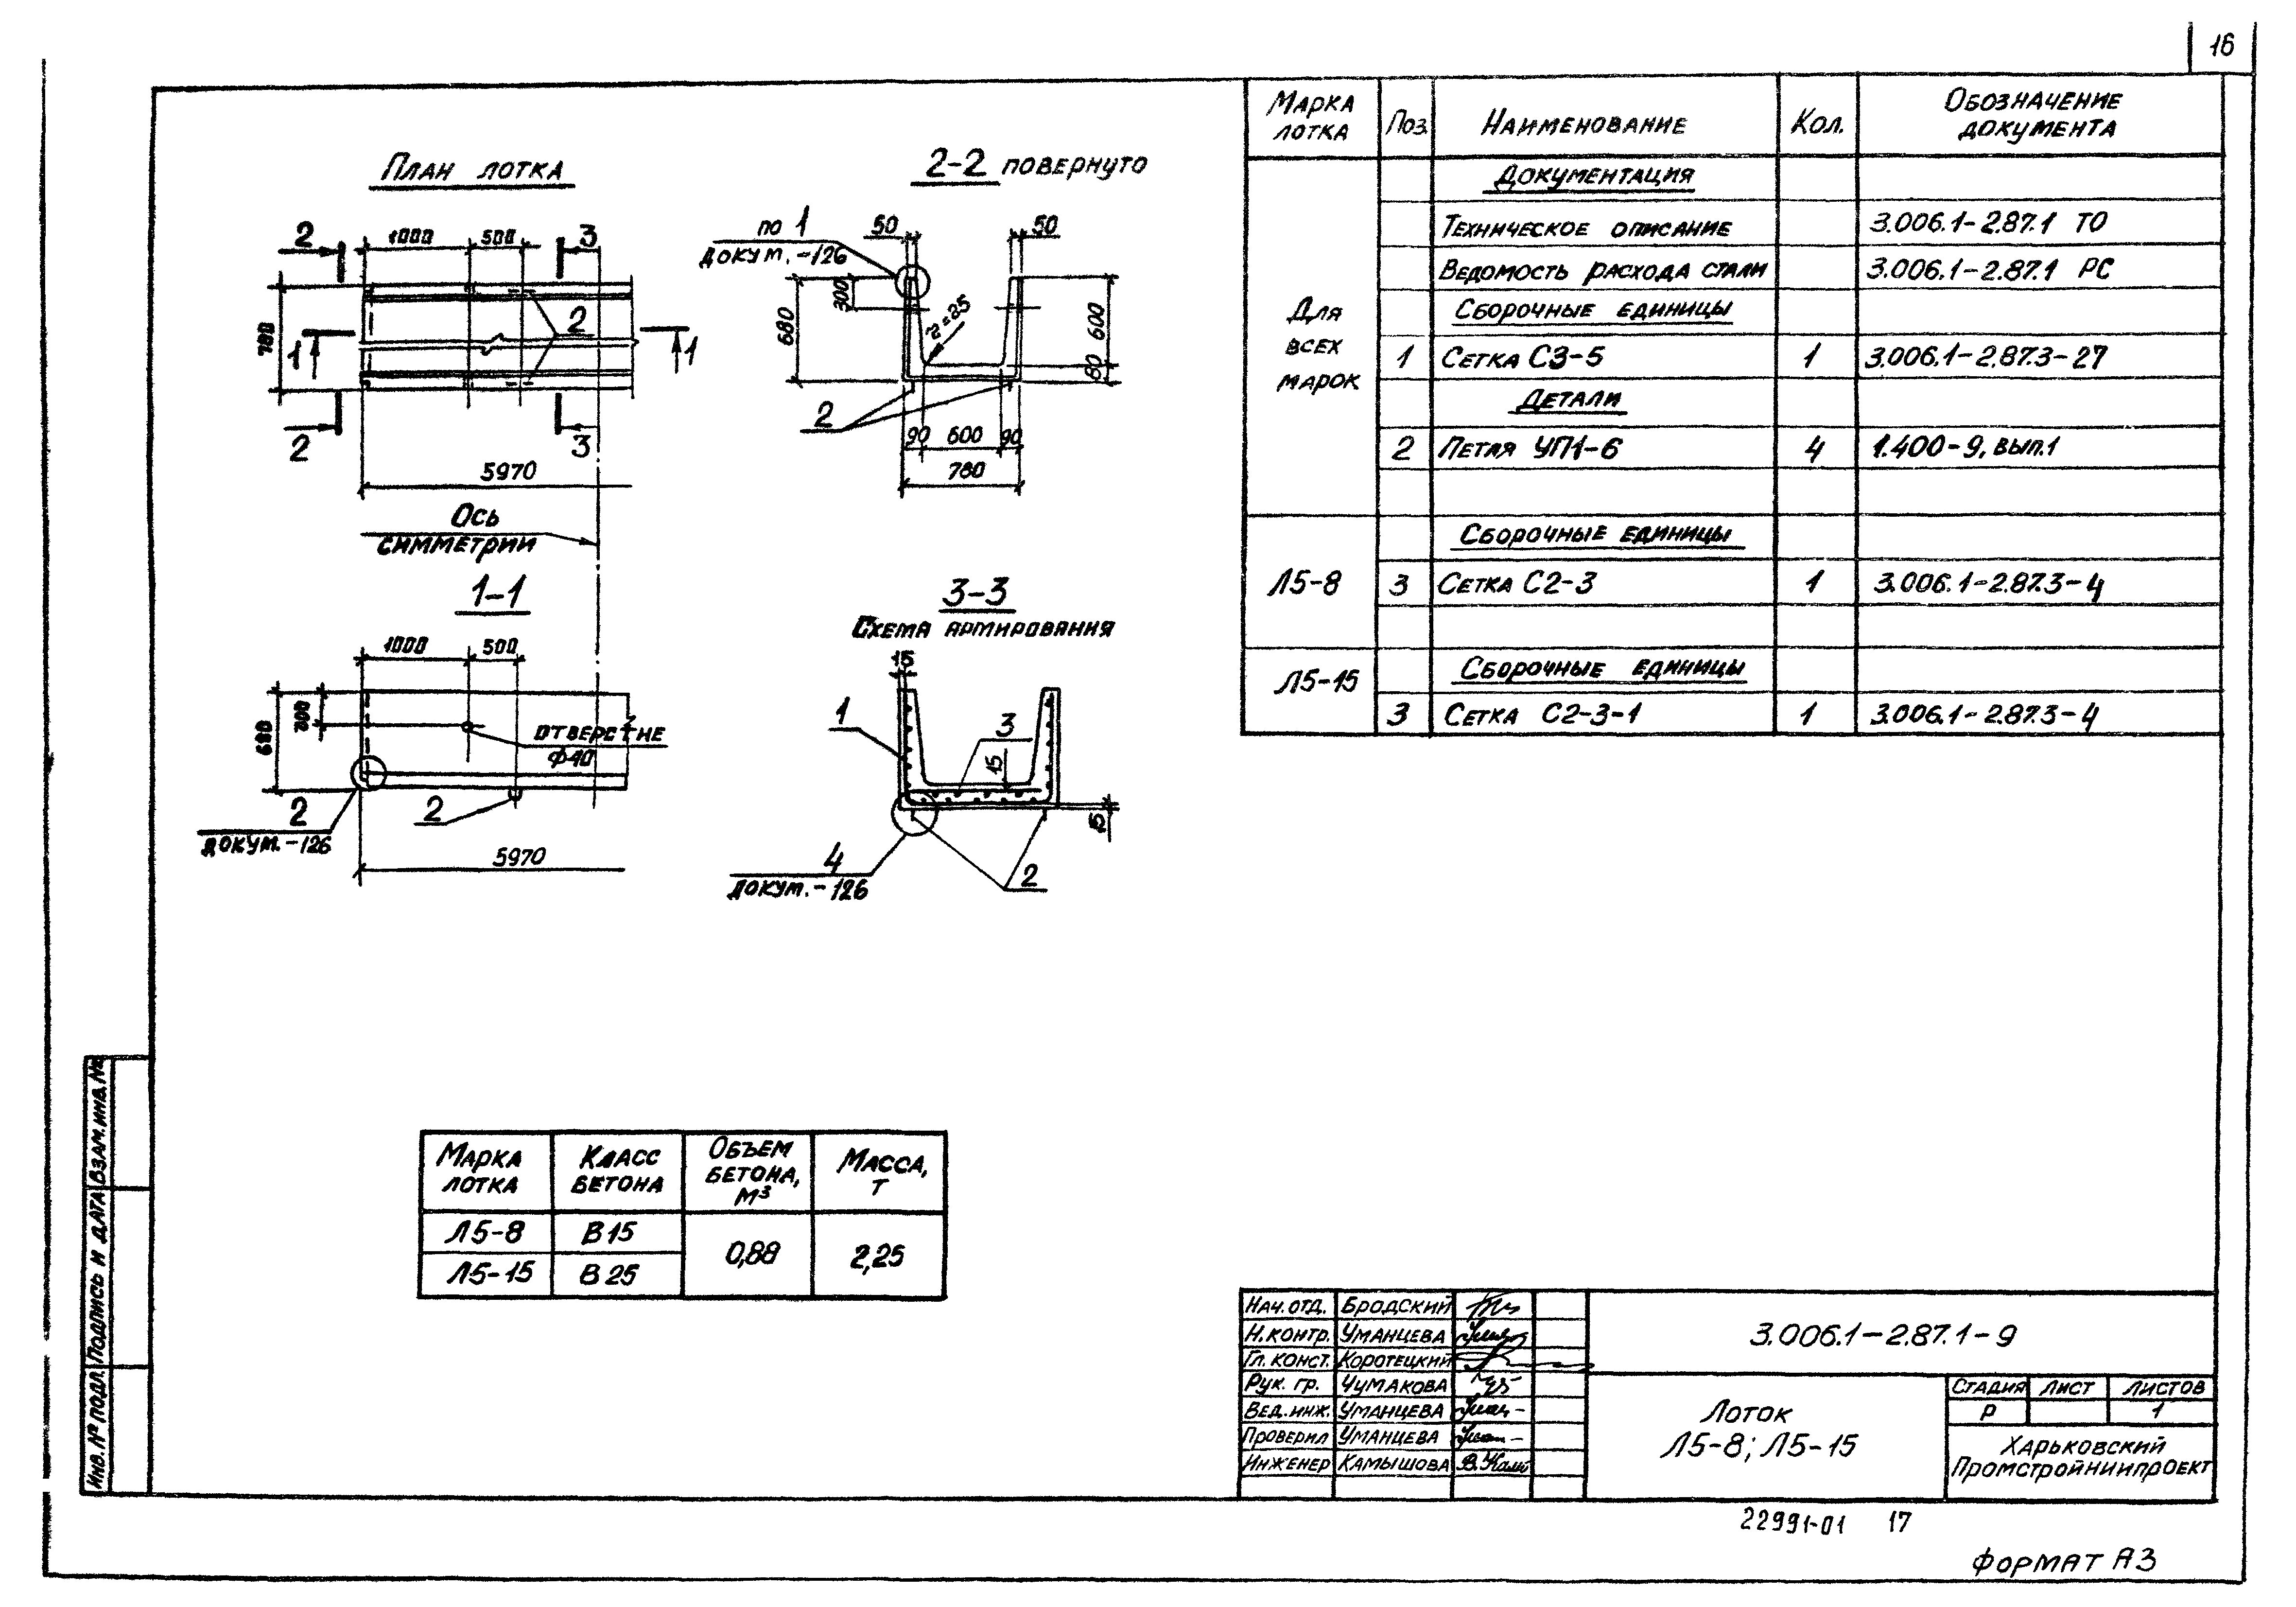 16
План лотка
2
1000
500
3
780
2
1
1
2
3
5970
Ось
симметрии
1-1
1000
500
680
300
отверстие
ф40
2
докум.-126
2
5970
2-2 повернуто
по 1
докум.-126
50
50
300
680
600
80
2
90
600
90
780
3-3
Схема армирования
15
1
3
15
15
4
докум.-126
2
Марка лотка
Поз.
Наименование
Кол.
Обозначение документа
Для всех марок
Документация
Техническое описание
3.006.1-2.87.1 ТО
Ведомость расхода стали
3.006.1-2.87.1 РС
Сборочные единицы
1 Сетка С3-5 1 3.006.1-2.87.3-27
Детали
2 Петля УП1-6 4 1.400-9, вып.1
Л5-8
Сборочные единицы
3 Сетка С2-3 1 3.006.1-2.87.3-4
Л5-15
Сборочные единицы
3 Сетка С2-3-1 1 3.006.1-2.87.3-4
Марка лотка
Класс бетона
Объем бетона, м³
Масса, т
Л5-8 В15
0,88 2,25
Л5-15 В25
Инв.№ подл. Подпись и дата Взам.инв.№
Нач.отд. Бродский
Н.контр. Уманцева
Гл.конст. Коротецкий
Рук. гр. Чумакова
Вед.инж. Уманцева
Проверил Уманцева
Инженер Камышова
3.006.1-2.87.1-9
Лоток
Л5-8; Л5-15
Стадия Лист Листов
Р 1
Харьковский
Промстройниипроект
22991-01 17
Формат А3